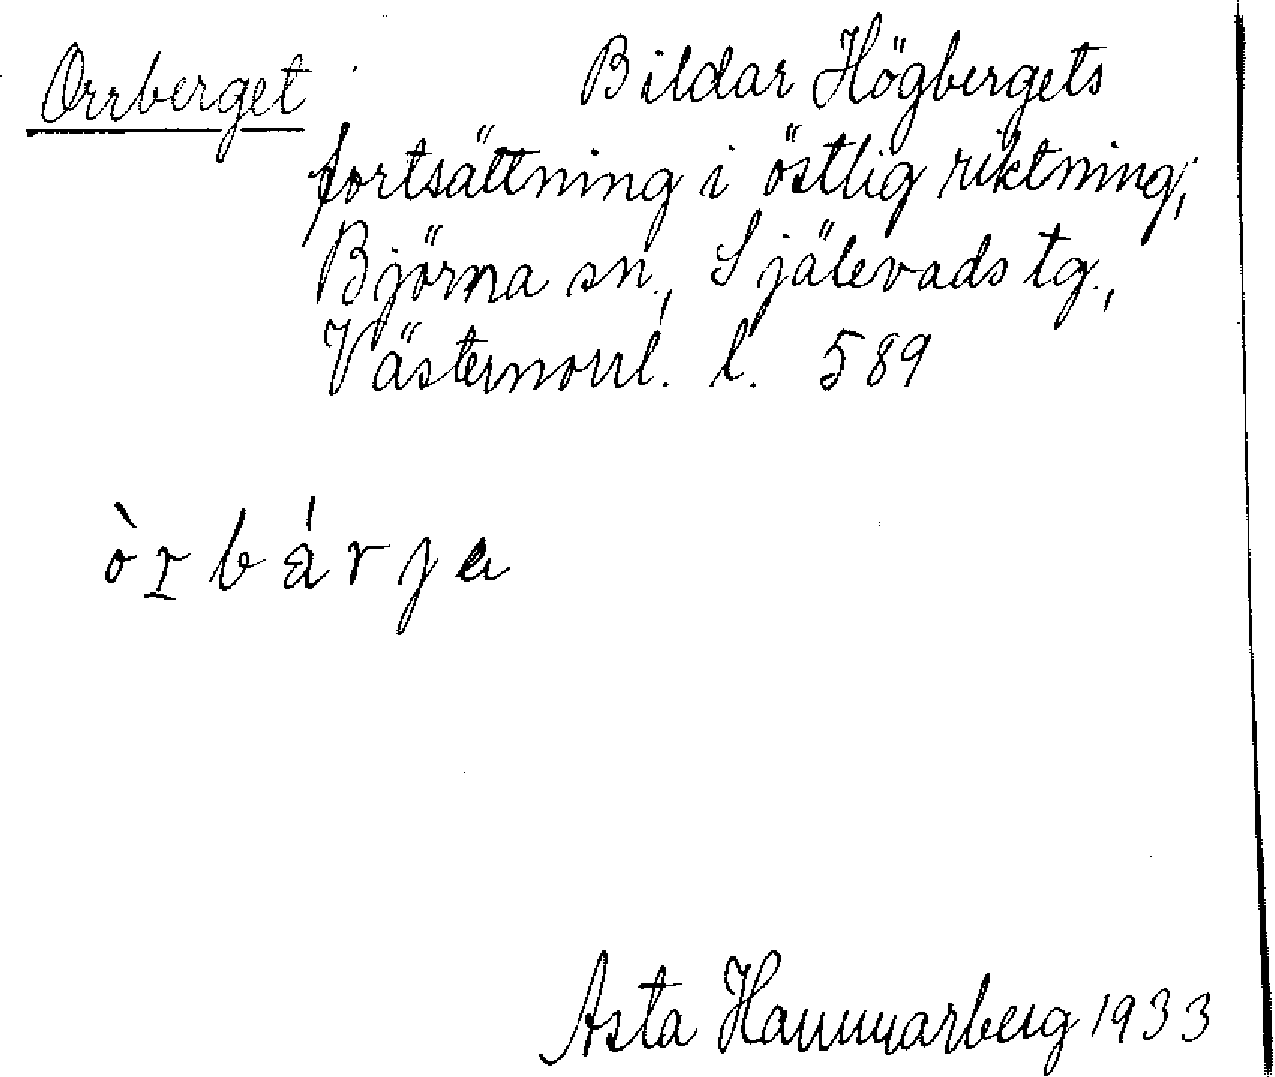 Orrberget Bildar Högbergets
fortsättning i östlig riktning,
Björna sn., Själevads tg.,
Västernorrl. l. 589
òr̲bárja
Asta Hammarberg 1933